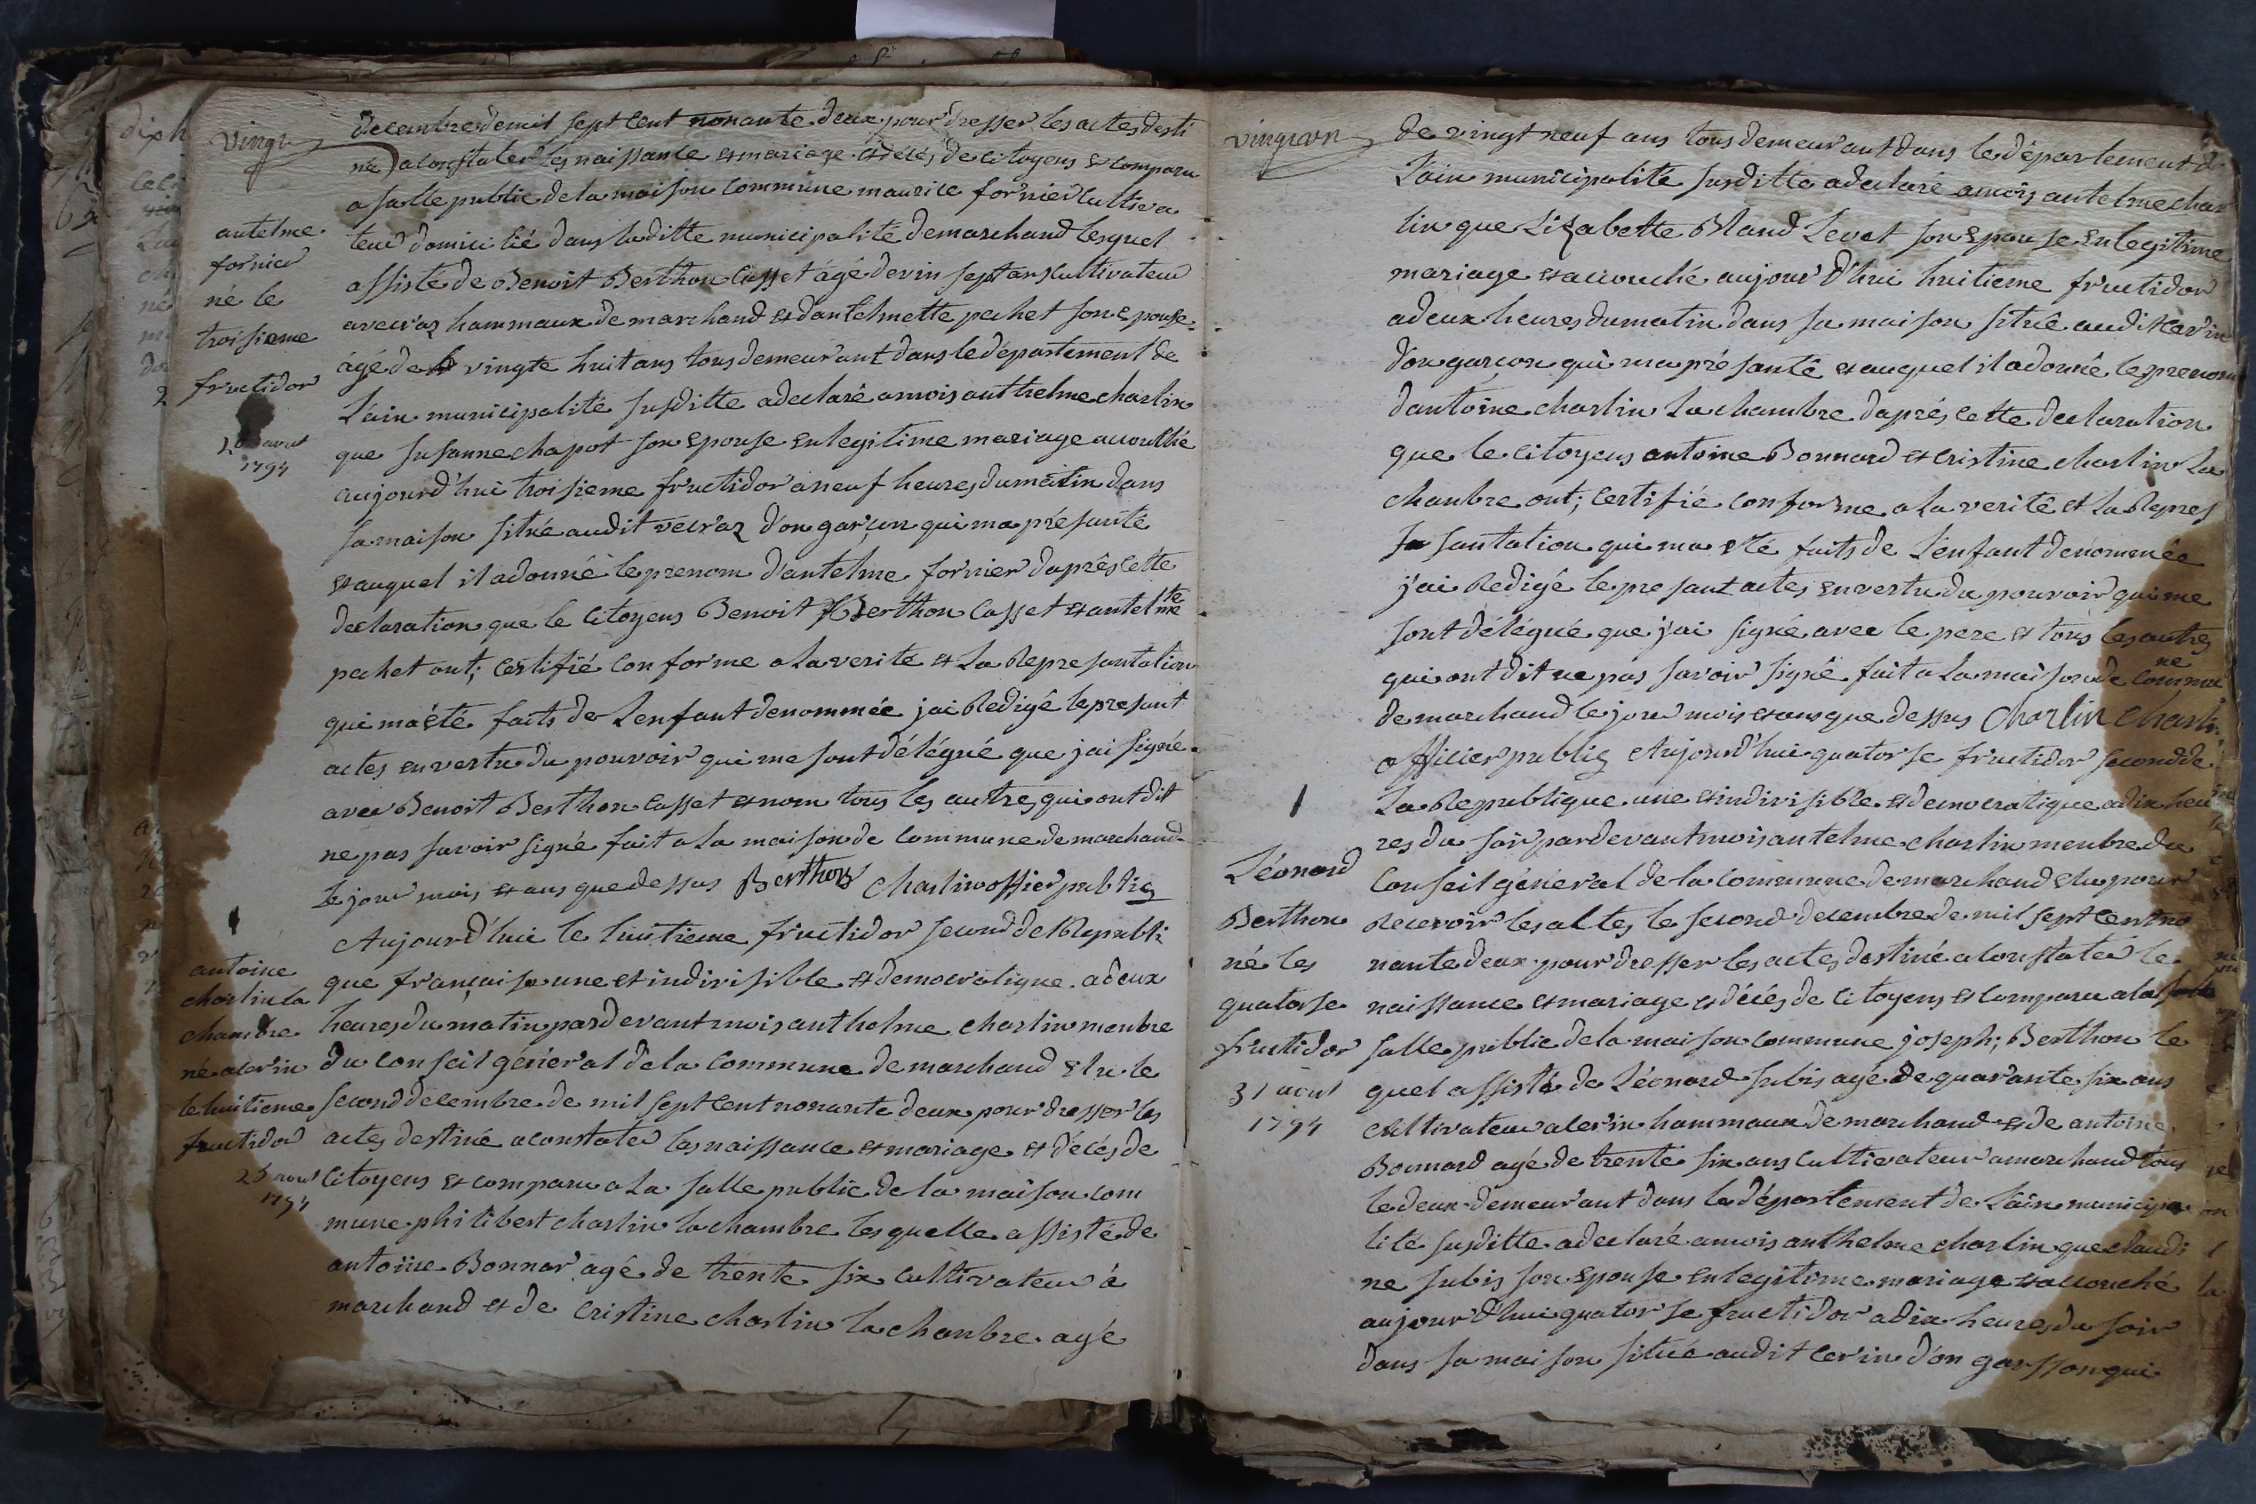 vingt
decembre de mil sept cent nonante deux pour dresser les actes desti
né a constater les naissance et mariage et décés de citoyens et comparu
a salle public de la maison commune maurice fornier cultiva
teur domicilié dans laditte municipalité demarchand lesquel
assisté de Benoit Berthon Casset âgé de vin sept ans cultivateur
hammaux de marchand et dantelmette pechet son epouse
âgé de vingte huit ans tous demeurant dans le département de
L'ain municipalité susditte a declaré a mois anthelme charlin
que susanne chapot son epouse en legitime mariage
aujourd'hui troisieme fructidor a neuf heures du matin dans
sa maison située audit d'on garçon qui ma présanté
et auquel il a donné le prenom dantelme fornier daprês cette
declaration que le citoyens Benoit Berthon Casset et antelmette
pechet ont; certifié conforme a la verité et la Represantation
qui ma été faits de Lenfant denommée jai Redigé le presant
actes en vertu du pouvoir qui me sont délégué que jai signé
avec Benoit Berthon Casset et nom tous les autres qui ont dit
ne pas savoir signé fait a la maison de commune de marchand
le jour mois et ans que dessus Berthon Charlin offier public
antelme
fornier
né le
troisieme
fructidor
20 aout
1794
Aujourd'hui le huitieme fructidor second de Republi
que française une et indivisible et democratique a deux
heures du matin pardevant mois anthelme charlin menbre
du conseil général de la commune de marchand elu le
second decembre de mil sept cent nonante deux pour dresser les
actes destiné a constater les naissance et mariage et décés de
citoyens et comparu a la salle public de la maison com
mune philibert charlin la chambre lesquelle assisté de
antoine Bonnar agé de trente six cultivateur à
marchand et de cristine charlin la chanbre agé
antoine
charlin la
chambre
né a cerin
le huitieme
fructidor
25 aout
1794
vingt un
de vingt neuf ans tous demeurant dans le département de
L'ain municipalité susditte a declaré a mois antelme char
lin que Lizabette Bland Levet son epouse en legitime
mariage et accouché aujour d'hui huitieme fructidor
a deux heures du matin dans sa maison située audit cerin
d'on garçon qui ma présanté et auquel il a donné le prenom
dantoine charlin la chambre daprés cette declaration
que le citoyens antoine Bonnard et cristine charlin la
chanbre ont; certifié conforme a la verité et la Repres
santation qui ma eté faits de L'enfant denommée
j'ai Redigé le presant actes en vertu du pouvoir qui me
sont délégué que j'ai signé avec le pere et tous les autres
qui ont dit ne pas savoir signé fait a la maison de commune
de marchand le jour mois et ans que dessus Charlin Charlin
officier public Aujourd'hui quatorse fructidor second de
La Republique une et indivisible et democratique a dix heu
res du soir pardevant mois antelme charlin menbre du
Conseil général de la commune de marchand elu pour
Recevoir les actes le second decembre de mil sept cent no
nante deux pour dresser les actes destiné a constater le
naissance et mariage et décés de citoyens et comparu a la
salle public de la maison commune joseph; Berthon le
quel assisté de Léonard subis agé de quarante six ans
cultivateur a cerin hammaux de marchand et de antoine
Bonnard agé de trente six ans cultivateur a marchand tous
le deux demeurant dans le département de L'ain municipa
lité susditte a declaré a mois anthelme charlin que claudi
ne subis son epouse en legitime mariage et accouché
aujourd'hui quatorse fructidor a dix heures du soir
dans sa maison située audit cerin d'on garsson qui
Léonard
Berthon
né les
quatorse
fructidor
31 aout
1794